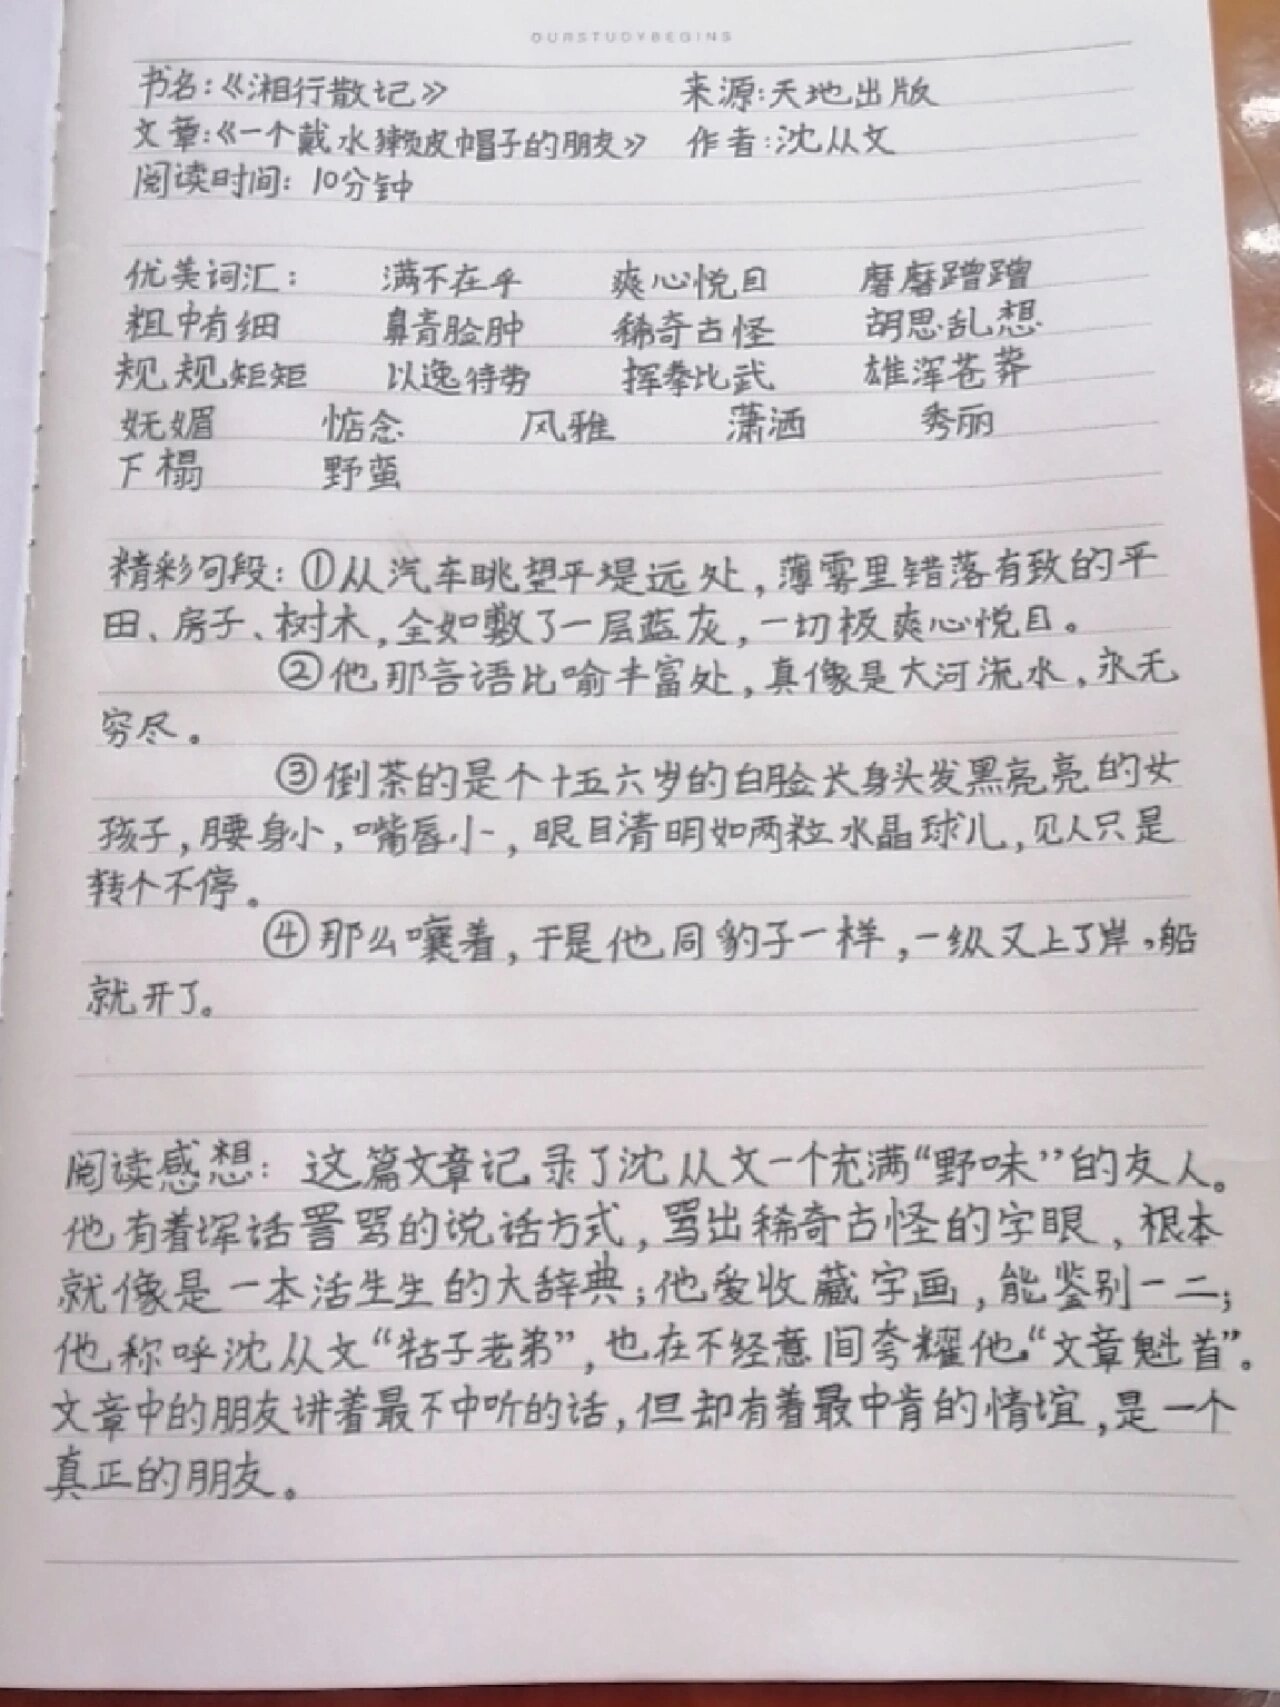 OURSTUDYBEGINS
书名:《湘行散记》 来源:天地出版
文章:《一个戴水獭皮帽子的朋友》 作者:沈从文
阅读时间: 10分钟
优美词汇: 满不在乎 爽心悦目 磨磨蹭蹭
粗中有细 鼻青脸肿 稀奇古怪 胡思乱想
规规矩矩 以逸待劳 挥拳比武 雄浑苍莽
妩媚 惦念 风雅 潇洒 秀丽
下榻 野蛮
精彩句段:①从汽车眺望平堤远处,薄雾里错落有致的平
田、房子、树木,全如敷了一层蓝灰,一切极爽心悦目。
②他那言语比喻丰富处,真像是大河流水,永无
穷尽。
③倒茶的是个十五六岁的白脸长身头发黑亮亮的女
孩子,腰身小,嘴唇小,眼目清明如两粒水晶球儿,见人只是
转个不停。
④那么嚷着,于是他同豹子一样,一纵又上了岸,船
就开了。
阅读感想: 这篇文章记录了沈从文一个充满“野味”的友人。
他有着浑话詈骂的说话方式,骂出稀奇古怪的字眼,根本
就像是一本活生生的大辞典;他爱收藏字画,能鉴别一二;
他称呼沈从文“牯子老弟”,也在不经意间夸耀他“文章魁首”。
文章中的朋友讲着最不中听的话,但却有着最中肯的情谊,是一个
真正的朋友。